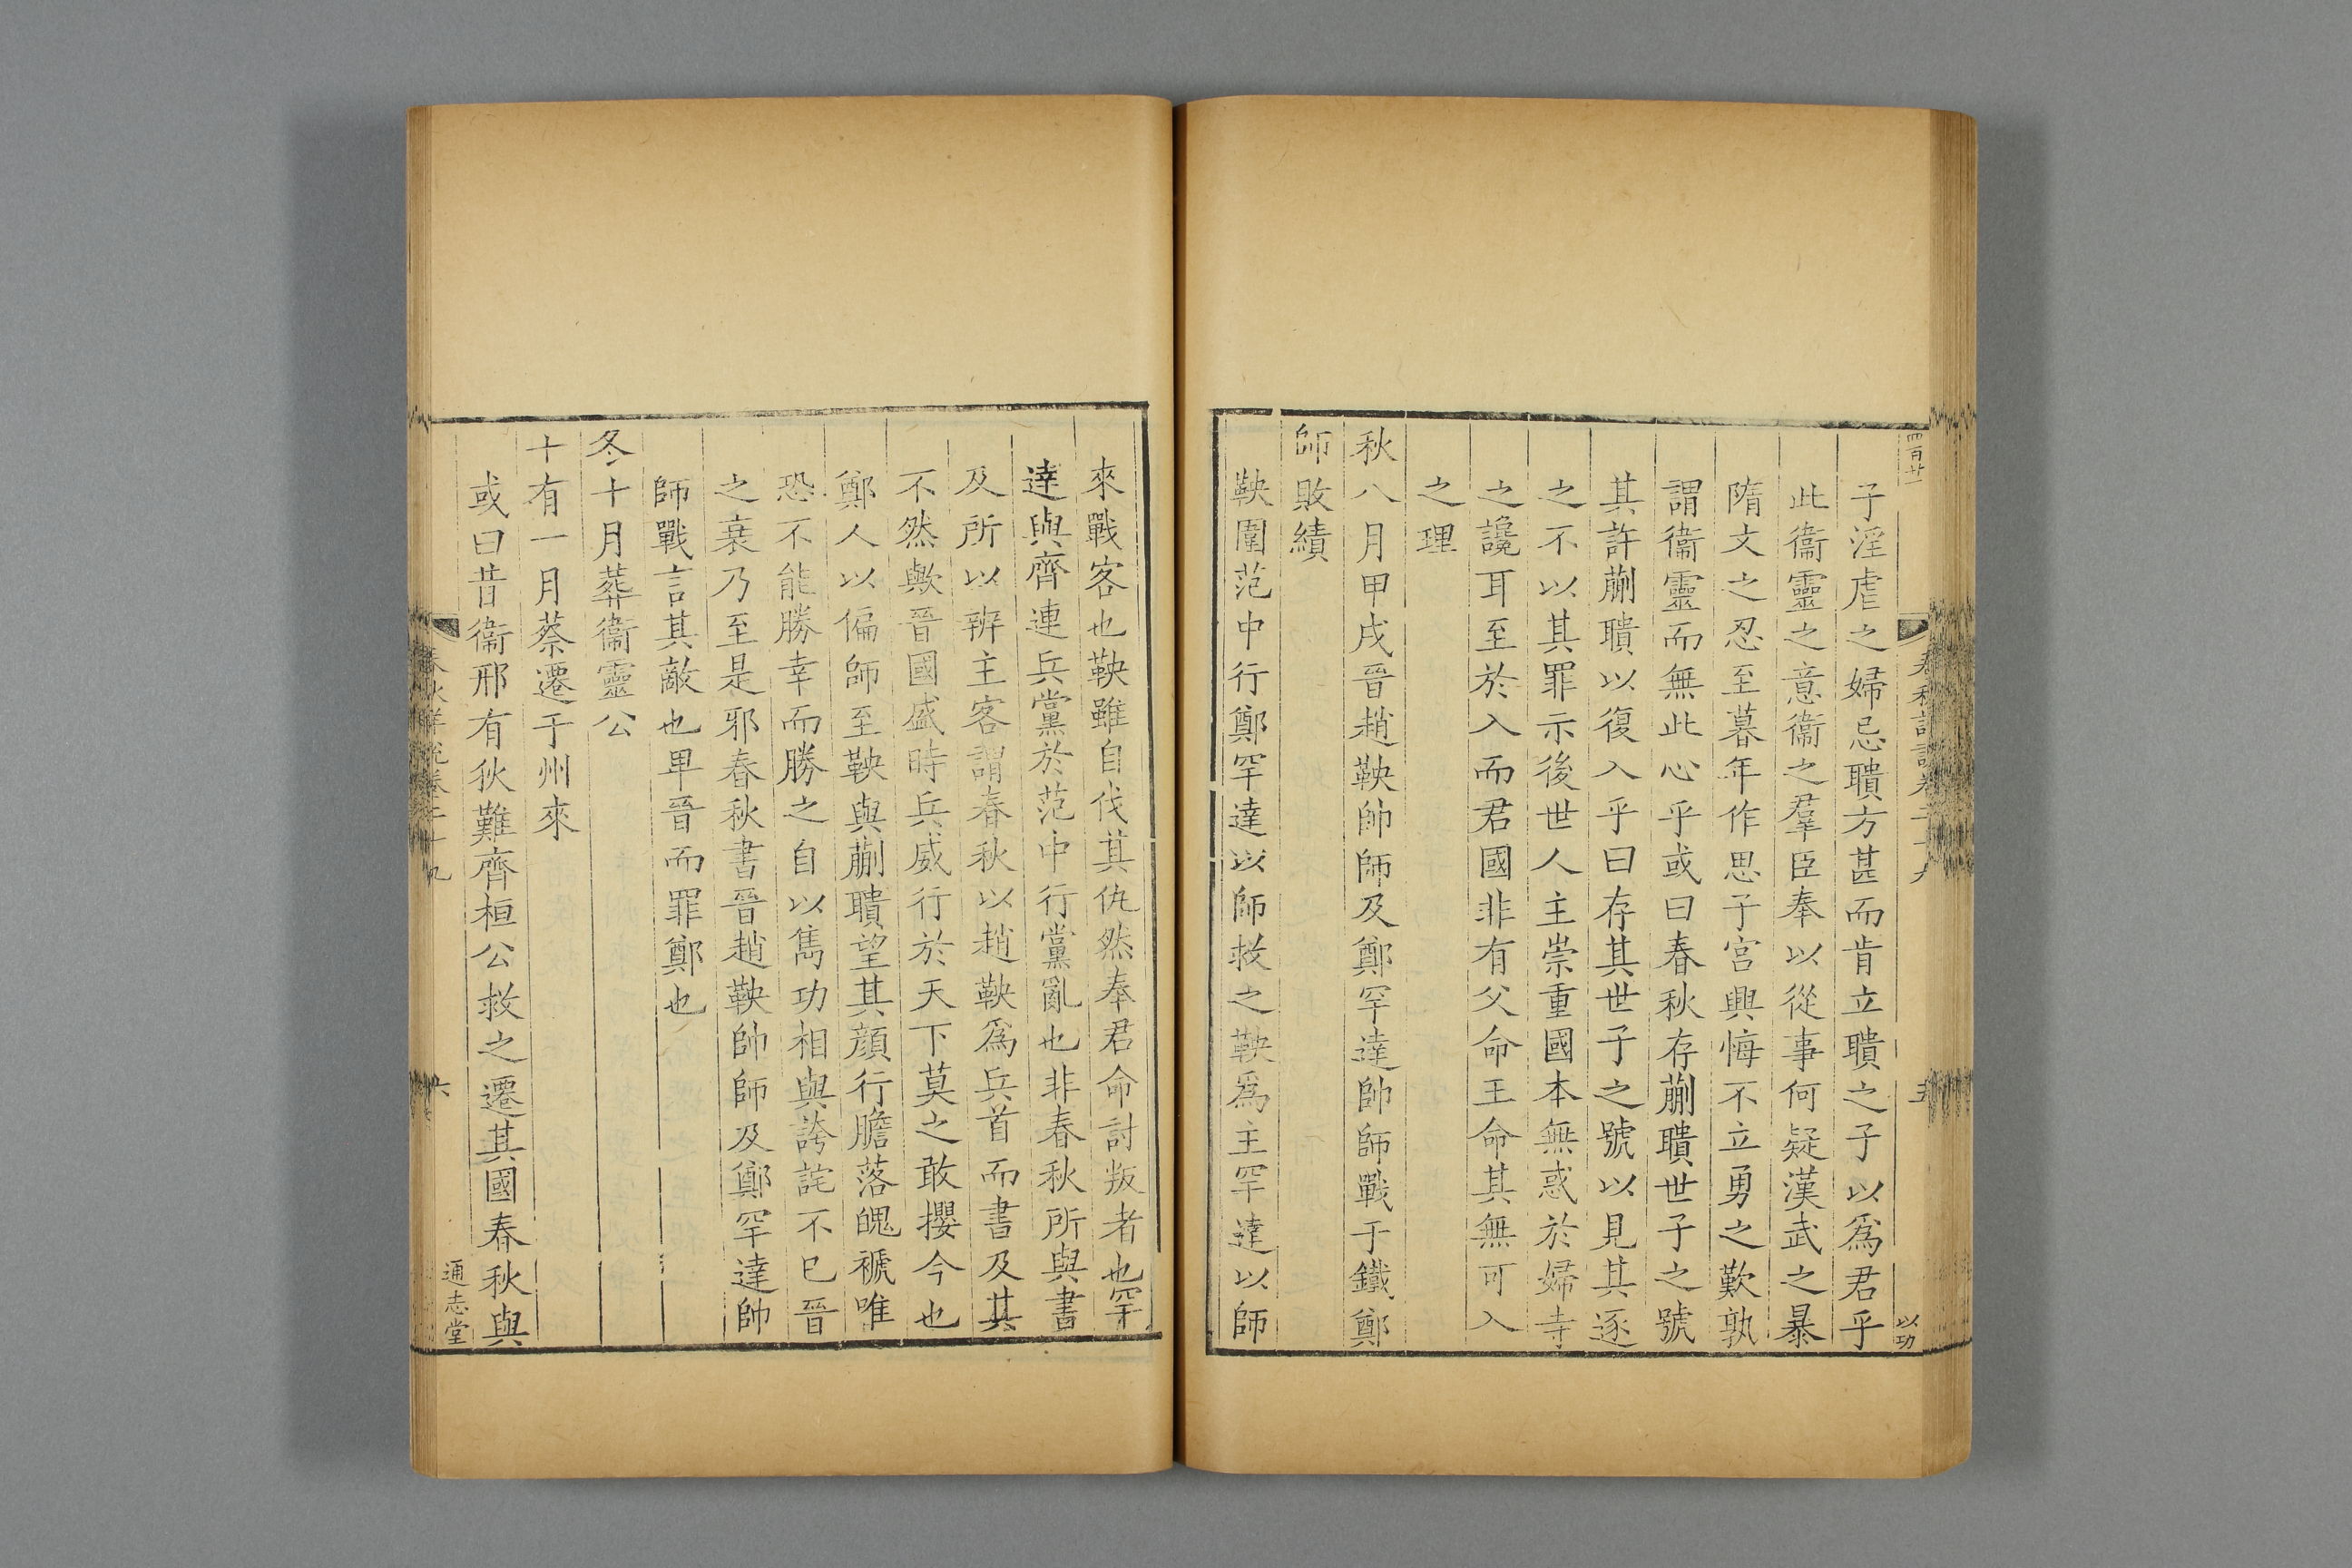 四百廿一
子淫虐之婦忌聵方甚而肯立聵之子以爲君乎
此衞靈之意衞之羣臣奉以從事何疑漢武之暴
隋文之忍至暮年作思子宮興悔不立勇之歎孰
謂衞靈而無此心乎或曰春秋存蒯聵世子之號
其許蒯聵以復入乎曰存其世子之號以見其逐
之不以其罪示後世人主崇重國本無惑於婦寺
之讒耳至於入而君國非有父命王命其無可入
之理
秋八月甲戌晉趙鞅帥師及鄭罕達帥師戰于鐵鄭
師敗績
鞅圍范中行鄭罕達以師救之鞅爲主罕達以師
以功
來戰客也鞅雖自伐其仇然奉君命討叛者也罕
達與齊連兵黨於范中行黨亂也非春秋所與書
及所以辨主客謂春秋以趙鞅爲兵首而書及其
不然歟晉國盛時兵威行於天下莫之敢攖今也
鄭人以偏師至鞅與蒯聵望其顔行膽落魄褫唯
恐不能勝幸而勝之自以雋功相與誇詫不已晉
之衰乃至是邪春秋書晉趙鞅帥師及鄭罕達帥
師戰言其敵也卑晉而罪鄭也
冬十月葬衞靈公
十有一月蔡遷于州來
或曰昔衞邢有狄難齊桓公救之遷其國春秋與
春秋詳說卷二十九
六
通志堂